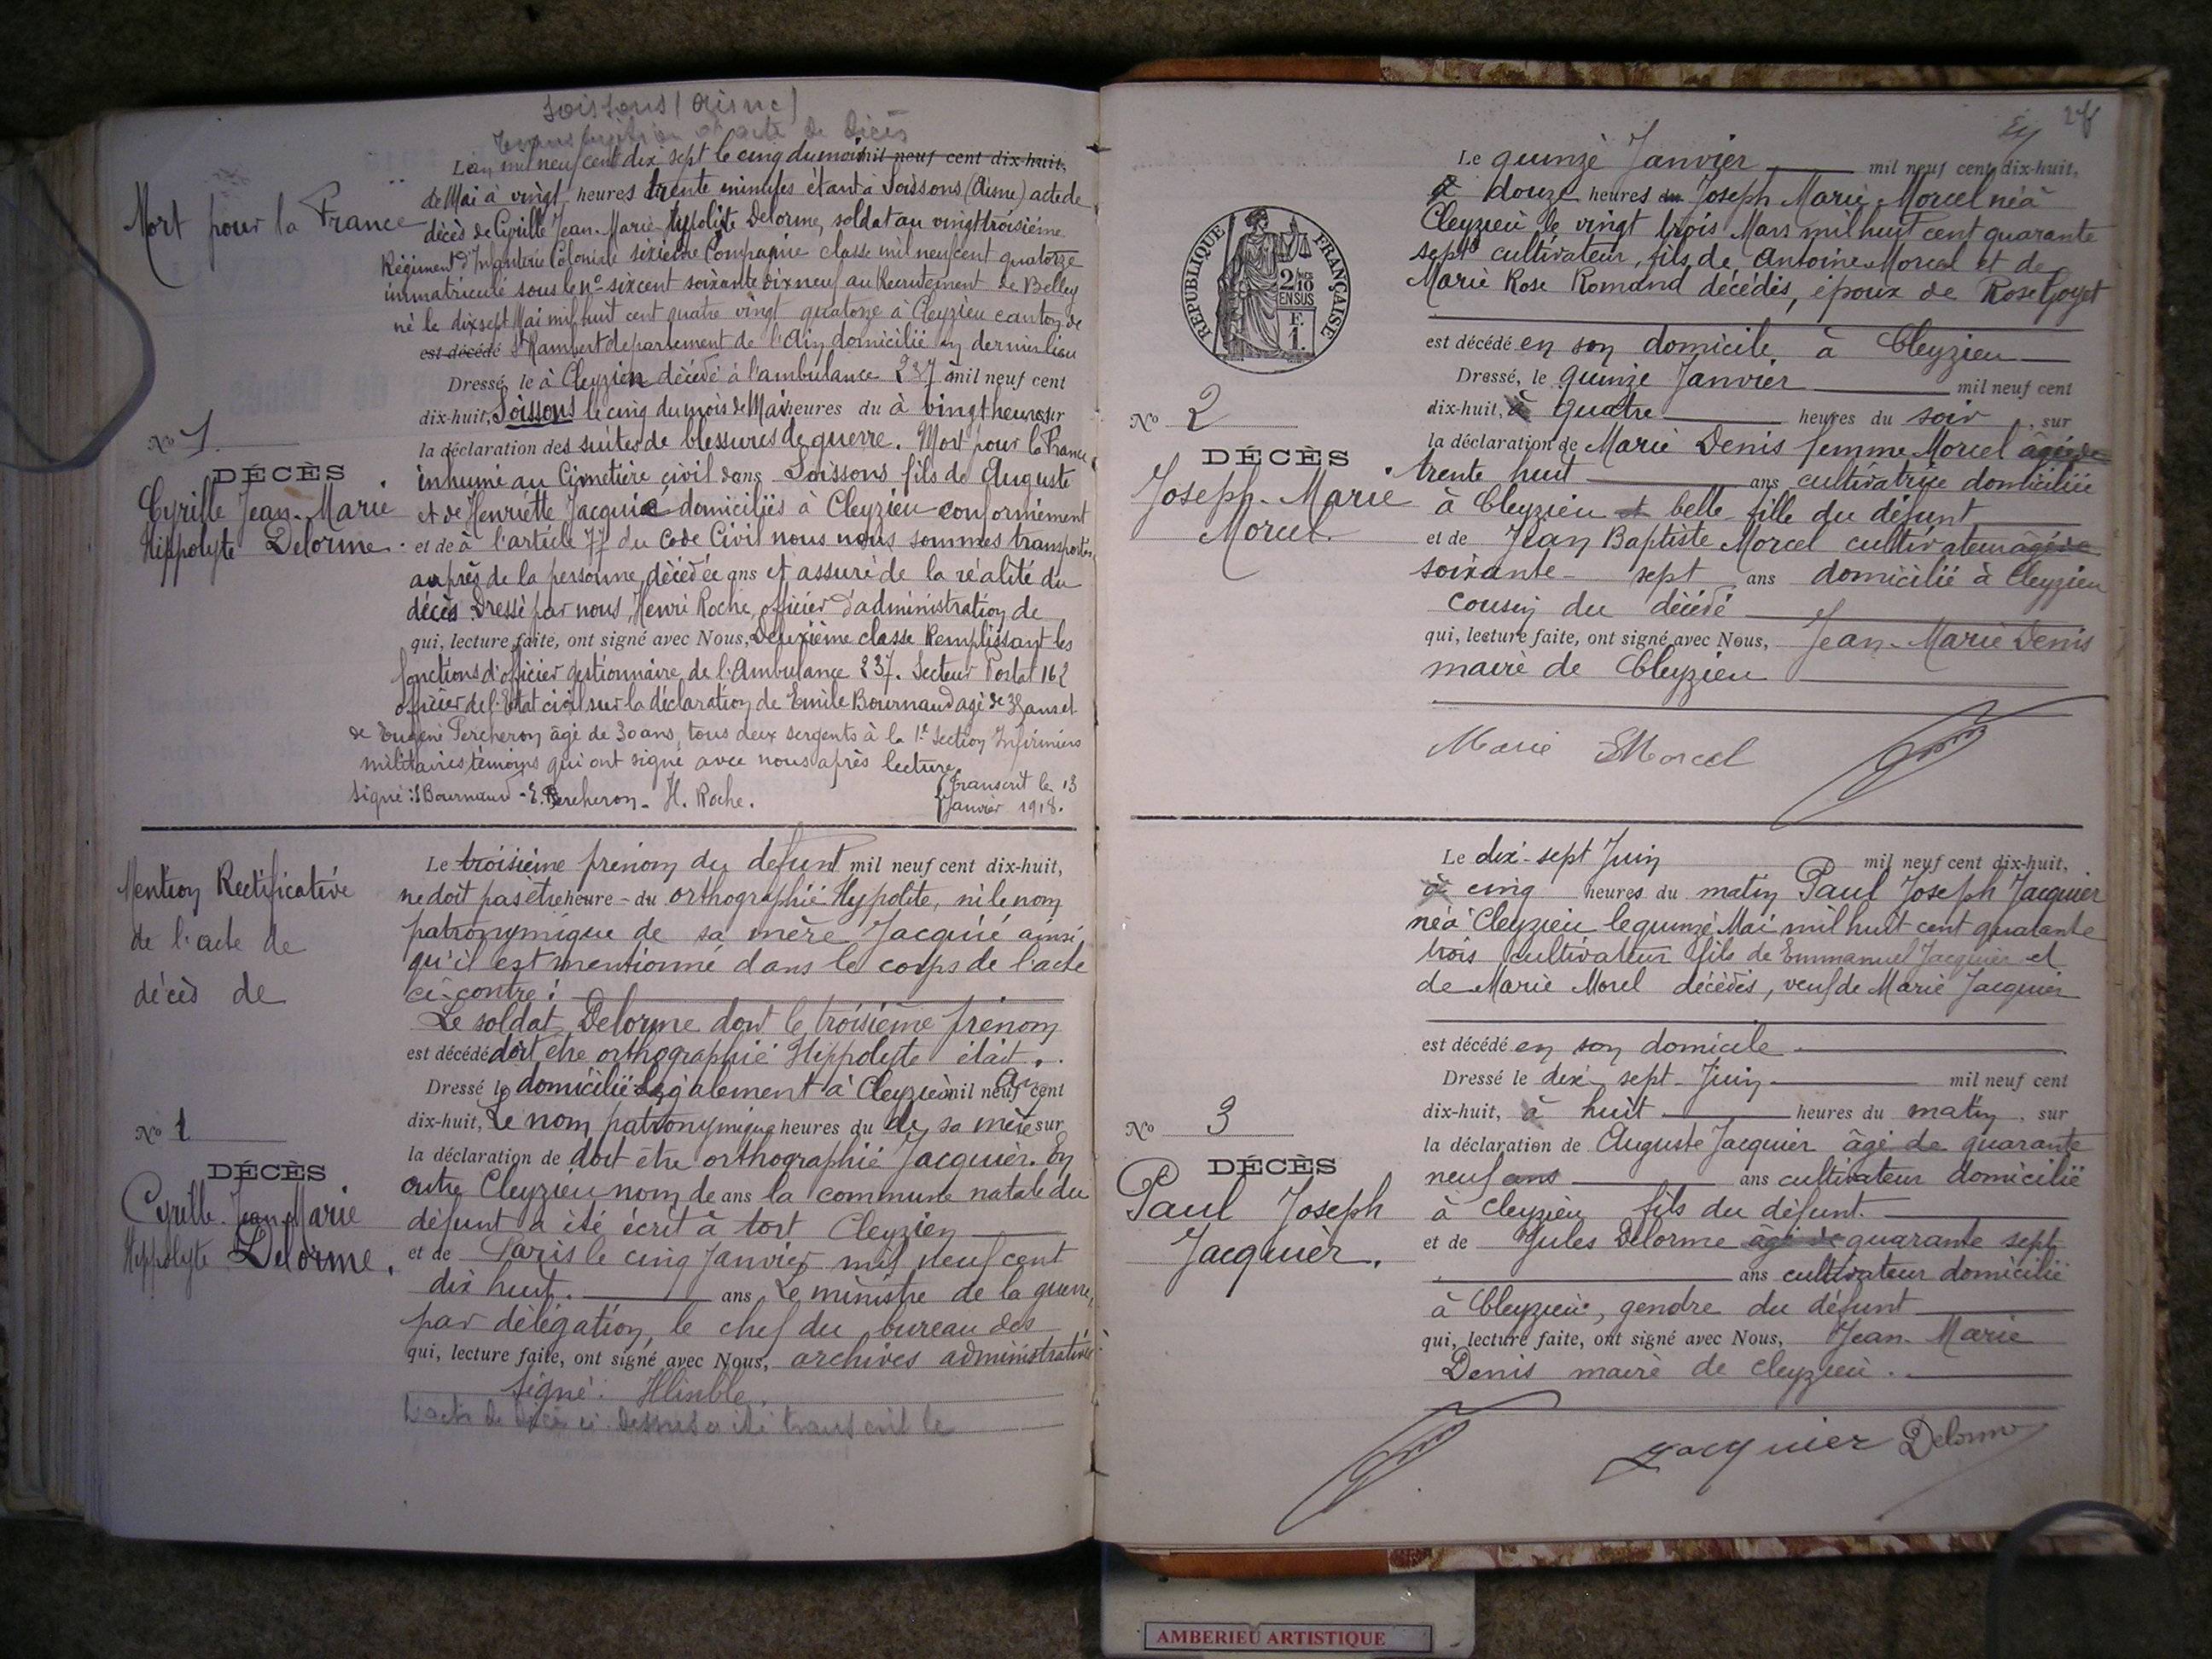 Soissons (Aisne)
Transcription d'acte de décès
L'an mil neuf cent dix sept le cinq du mois mil neuf cent dix-huit,
de Mai à vingt heures trente minutes étant à Soissons (Aisne) acte de
Mort pour la France
décès de Cyrille Jean-Marie Hypolite Delorme, soldat au vingt troisième
Régiment d'Infanterie Coloniale sixième Compagnie classe mil neuf cent quatorze
immatriculé sous le no six cent soixante dix neuf au Recrutement de Belley
né le dix sept Mai mil huit cent quatre vingt quatorze à Cleyzieu canton de
est décédé St Rambert département de l'Ain domicilié en dernier lieu
Dressé, le à Cleyzien décédé à l'ambulance 237 à mil neuf cent
dix-huit, Soissons le cinq du mois de Mai heures du à vingt heures sur
la déclaration des suites de blessures de guerre. Mort pour la France
inhumé au Cimetière civil dans Soissons fils de Auguste
et de Henriette Jacquié domiciliés à Cleyzieu conformément
et de à l'article 77 du Code Civil nous nous sommes transportés
auprès de la personne décédée ans et assuré de la réalité du
décès. Dressé par nous, Henri Roche, officier d'administration de
qui, lecture faite, ont signé avec Nous, Deuxième classe Remplissant les
fonctions d'officier gestionnaire de l'Ambulance 237. Secteur Postal 162
officier de l'Etat civil sur la déclaration de Emile Bournaud agé de ans et
de Eugène Percheron âgé de 30 ans, tous deux sergents à la 1e Section Infirmiers
militaires, témoins qui ont signé avec nous après lecture.
Signé: Bournaud - E. Percheron - H. Roche.
Transcrit le 13
Janvier 1918.
No 1
DÉCÈS
Cyrille Jean-Marie
Hippolyte Delorme.
Mention Rectificative
de l'acte de
décès de
No 1
DÉCÈS
Cyrille Jean-Marie
Hippolyte Delorme.
Le troisième prénom du défunt mil neuf cent dix-huit,
ne doit pas être heure - du orthographié Hypolite, ni le nom
patronymique de sa mère Jacquié ainsi
qu'il est mentionné dans le corps de l'acte
ci-contre:
Le soldat Delorme dont le troisième prénom
est décédé doit être orthographié Hippolyte était
Dressé le domicilié légalement à Cleyzieu mil neuf cent
dix-huit, Le nom patronymique heures du de sa mère sur
la déclaration de doit être orthographié Jacquier. En
outre Cleyzieu nom de ans la commune natale du
défunt a été écrit à tort Cleyzien
et de Paris le cinq Janvier mil neuf cent
dix huit. ans Le ministre de la guerre,
par délégation, le chef du bureau des
qui, lecture faite, ont signé avec Nous, archives administratives
Signé:
L'acte de décès ci-dessus a été transcrit le
27
Le quinze Janvier mil neuf cent dix-huit,
à douze heures du Joseph Marie Morcel né à
Cleyzieu le vingt trois Mars mil huit cent quarante
sept cultivateur, fils de Antoine Morcel et de
Marie Rose Romand décédés, époux de Rose Goyet
est décédé en son domicile à Cleyzieu
Dressé, le quinze Janvier mil neuf cent
dix-huit, à quatre heures du soir, sur
la déclaration de Marie Denis femme Morcel âgée de
trente huit ans cultivatrice domiciliée
à Cleyzieu et belle-fille du défunt
et de Jean Baptiste Morcel cultivateur âgé de
soixante-sept ans domicilié à Cleyzieu
cousin du décédé
qui, lecture faite, ont signé avec Nous, Jean-Marie Denis
maire de Cleyzieu
Marie Morcel
RÉPUBLIQUE FRANÇAISE
2/10
EN SUS
F.
1.
No 2
DÉCÈS
Joseph-Marie
Morcel.
Le dix-sept Juin mil neuf cent dix-huit,
à cinq heures du matin Paul Joseph Jacquier
né à Cleyzieu le quinze Mai mil huit cent quarante
trois cultivateur fils de Emmanuel Jacquier et
de Marie Morel décédés, veuf de Marie Jacquier
est décédé en son domicile
Dressé le dix-sept Juin mil neuf cent
dix-huit, à huit heures du matin, sur
la déclaration de Auguste Jacquier âgé de quarante
neuf ans ans cultivateur domicilié
à Cleyzieu fils du défunt.
et de Jules Delorme âgé de quarante sept
ans cultivateur domicilié
à Cleyzieu, gendre du défunt
qui, lecture faite, ont signé avec Nous, Jean-Marie
Denis maire de Cleyzieu.
Jacquier Delorme
No 3
DÉCÈS
Paul Joseph
Jacquier.
AMBERIEU ARTISTIQUE